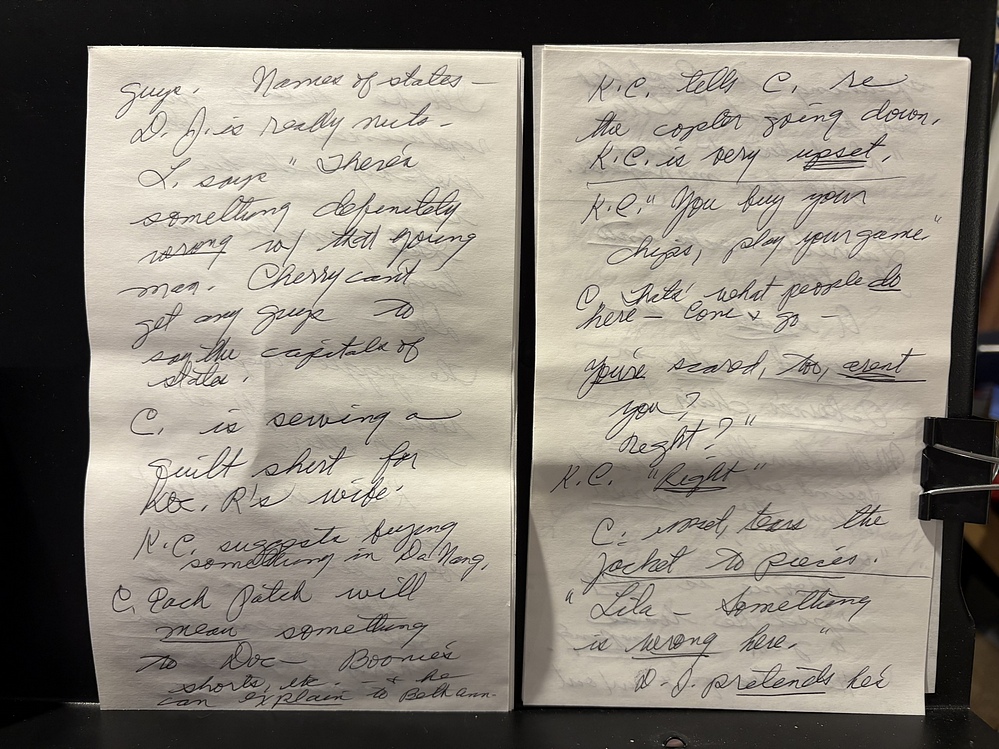 guys. Names of states —
D. J. is really nuts -
L. says " There's
something definitely
wrong w/ that young
man. Cherry can't
get any guys to
say the capitals of
states.
C. is sewing a
quilt shirt for
Doc. R's wife.
K.C. suggests buying
something in Da Nang.
C. Each patch will
mean something
to Doc — Boonie's
shorts, etc. - & he
can explain to Beth ann-
K.C. tells C. re
the copter going down.
K.C. is very upset.
K.C. " You buy your
chips, play your game"
C. That's what people do
here — Come & go —
You're scared, too, arent
you?
Right?"
K.C. "Right"
C. mad, tears the
jacket to pieces.
" Lila — Something
is wrong here."
D. J. pretends he's